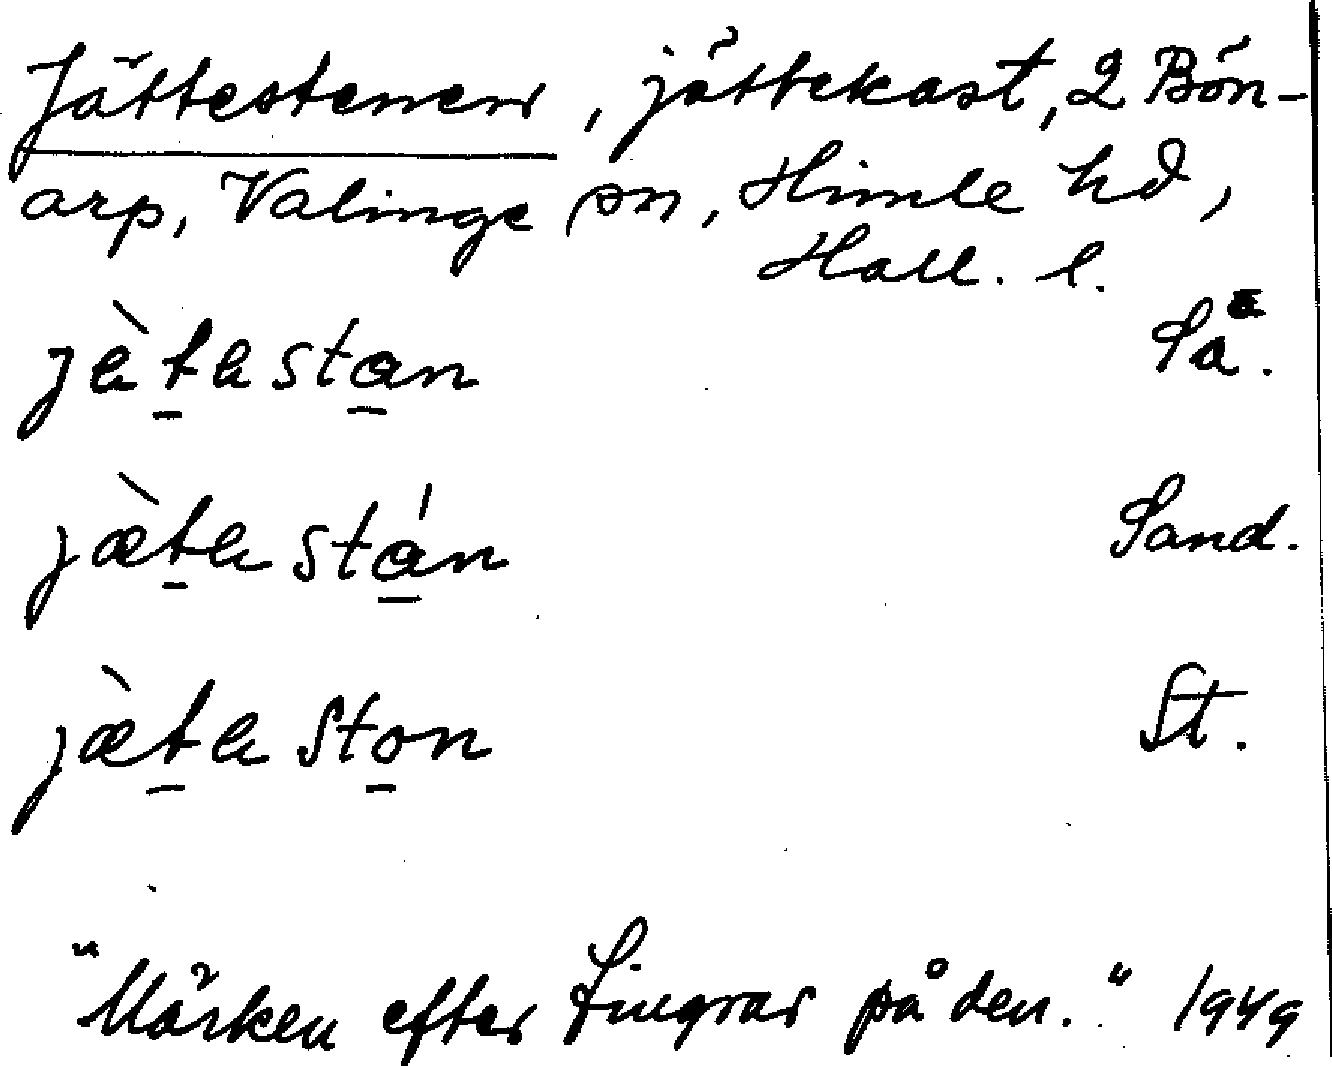 Jättestenen, jättekast, 2 Bön-
arp, Valinge sn, Himle hd,
Hall. l.
jètestan Så.
jæ̀testán Sand.
jæ̀teston St.
"Märken efter fingrar på den." 1949